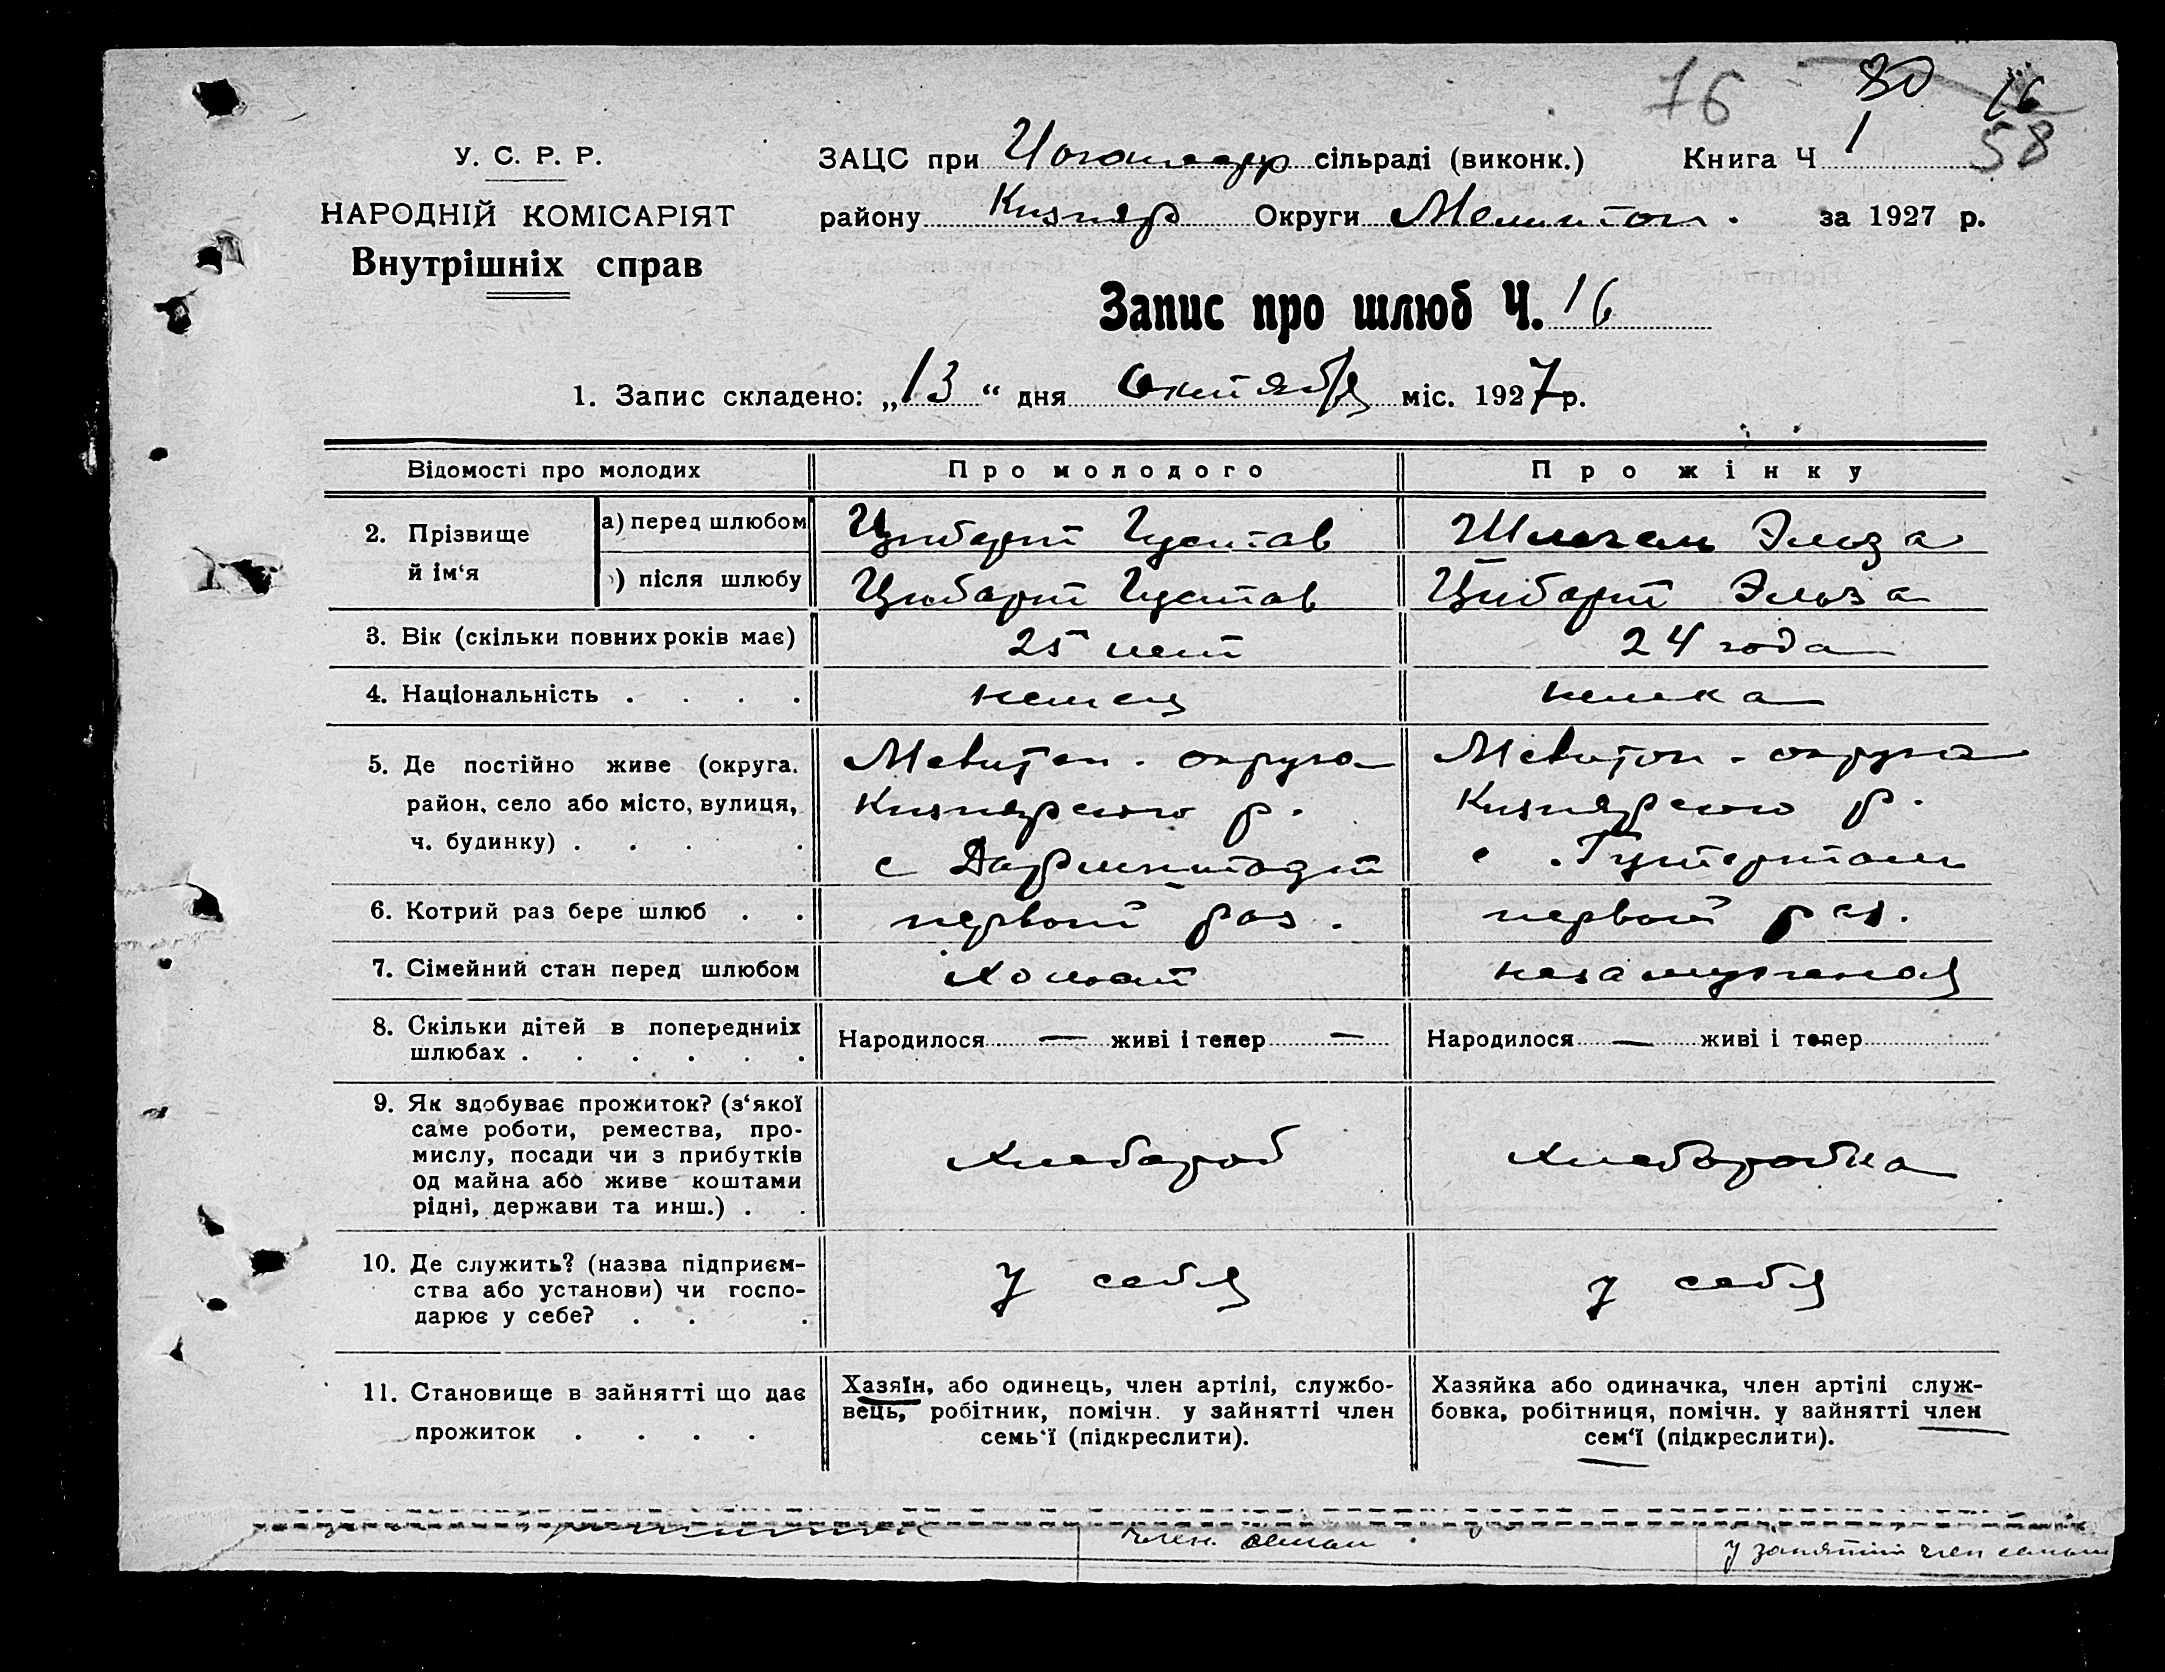 76 80 16
58
У. С. Р. Р.
НАРОДНІЙ КОМІСАРІЯТ
Внутрішніх справ
ЗАЦС при сільраді (виконк.) Книга Ч 1
району Кизияр Округи Мелитоп. за 1927 р.
Запис про шлюб Ч. 16
1. Запис складено: „13“ дня Октября міс. 1927 р.
Відомості про молодих Про молодого Про жінку
2. Прізвище й ім‘я
а) перед шлюбом Цибарт Густав Эльза
) після шлюбу Цибарт Густав Цибарт Эльза
3. Вік (скільки повних років має) 25 лет 24 года
4. Національність . . . . немец немка
5. Де постійно живе (округа,
район, село або місто, вулиця,
ч. будинку) . . . .
Мелитоп. округа
Кизиярского р.
с Дармштадт
Мелитоп. округа
Кизиярского р.
с. Гутерталь
6. Котрий раз бере шлюб . . первый раз. первый раз.
7. Сімейний стан перед шлюбом Холост незамужняя
8. Скільки дітей в попередниіх
шлюбах . . . . . .
Народилося — живі і тепер — Народилося — живі і тепер
9. Як здобуває прожиток? (з‘якої
саме роботи, ремества, про-
мислу, посади чи з прибутків
од майна або живе коштами
рідні, держави та инш.) . .
Хлебороб Хлеборобка
10. Де служить? (назва підприєм-
ства або установи) чи госпо-
дарює у себе? . . .
У себя у себя
11. Становище в зайнятті що дає
прожиток . . . .
Хазяїн, або одинець, член артілі, службо-
вець, робітник, помічн. у зайнятті член
семь‘ї (підкреслити).
Хазяйка або одиначка, член артілі служ-
бовка, робітниця, помічн. у зайнятті член
сем‘ї (підкреслити).
член семьи у занятии член семьи